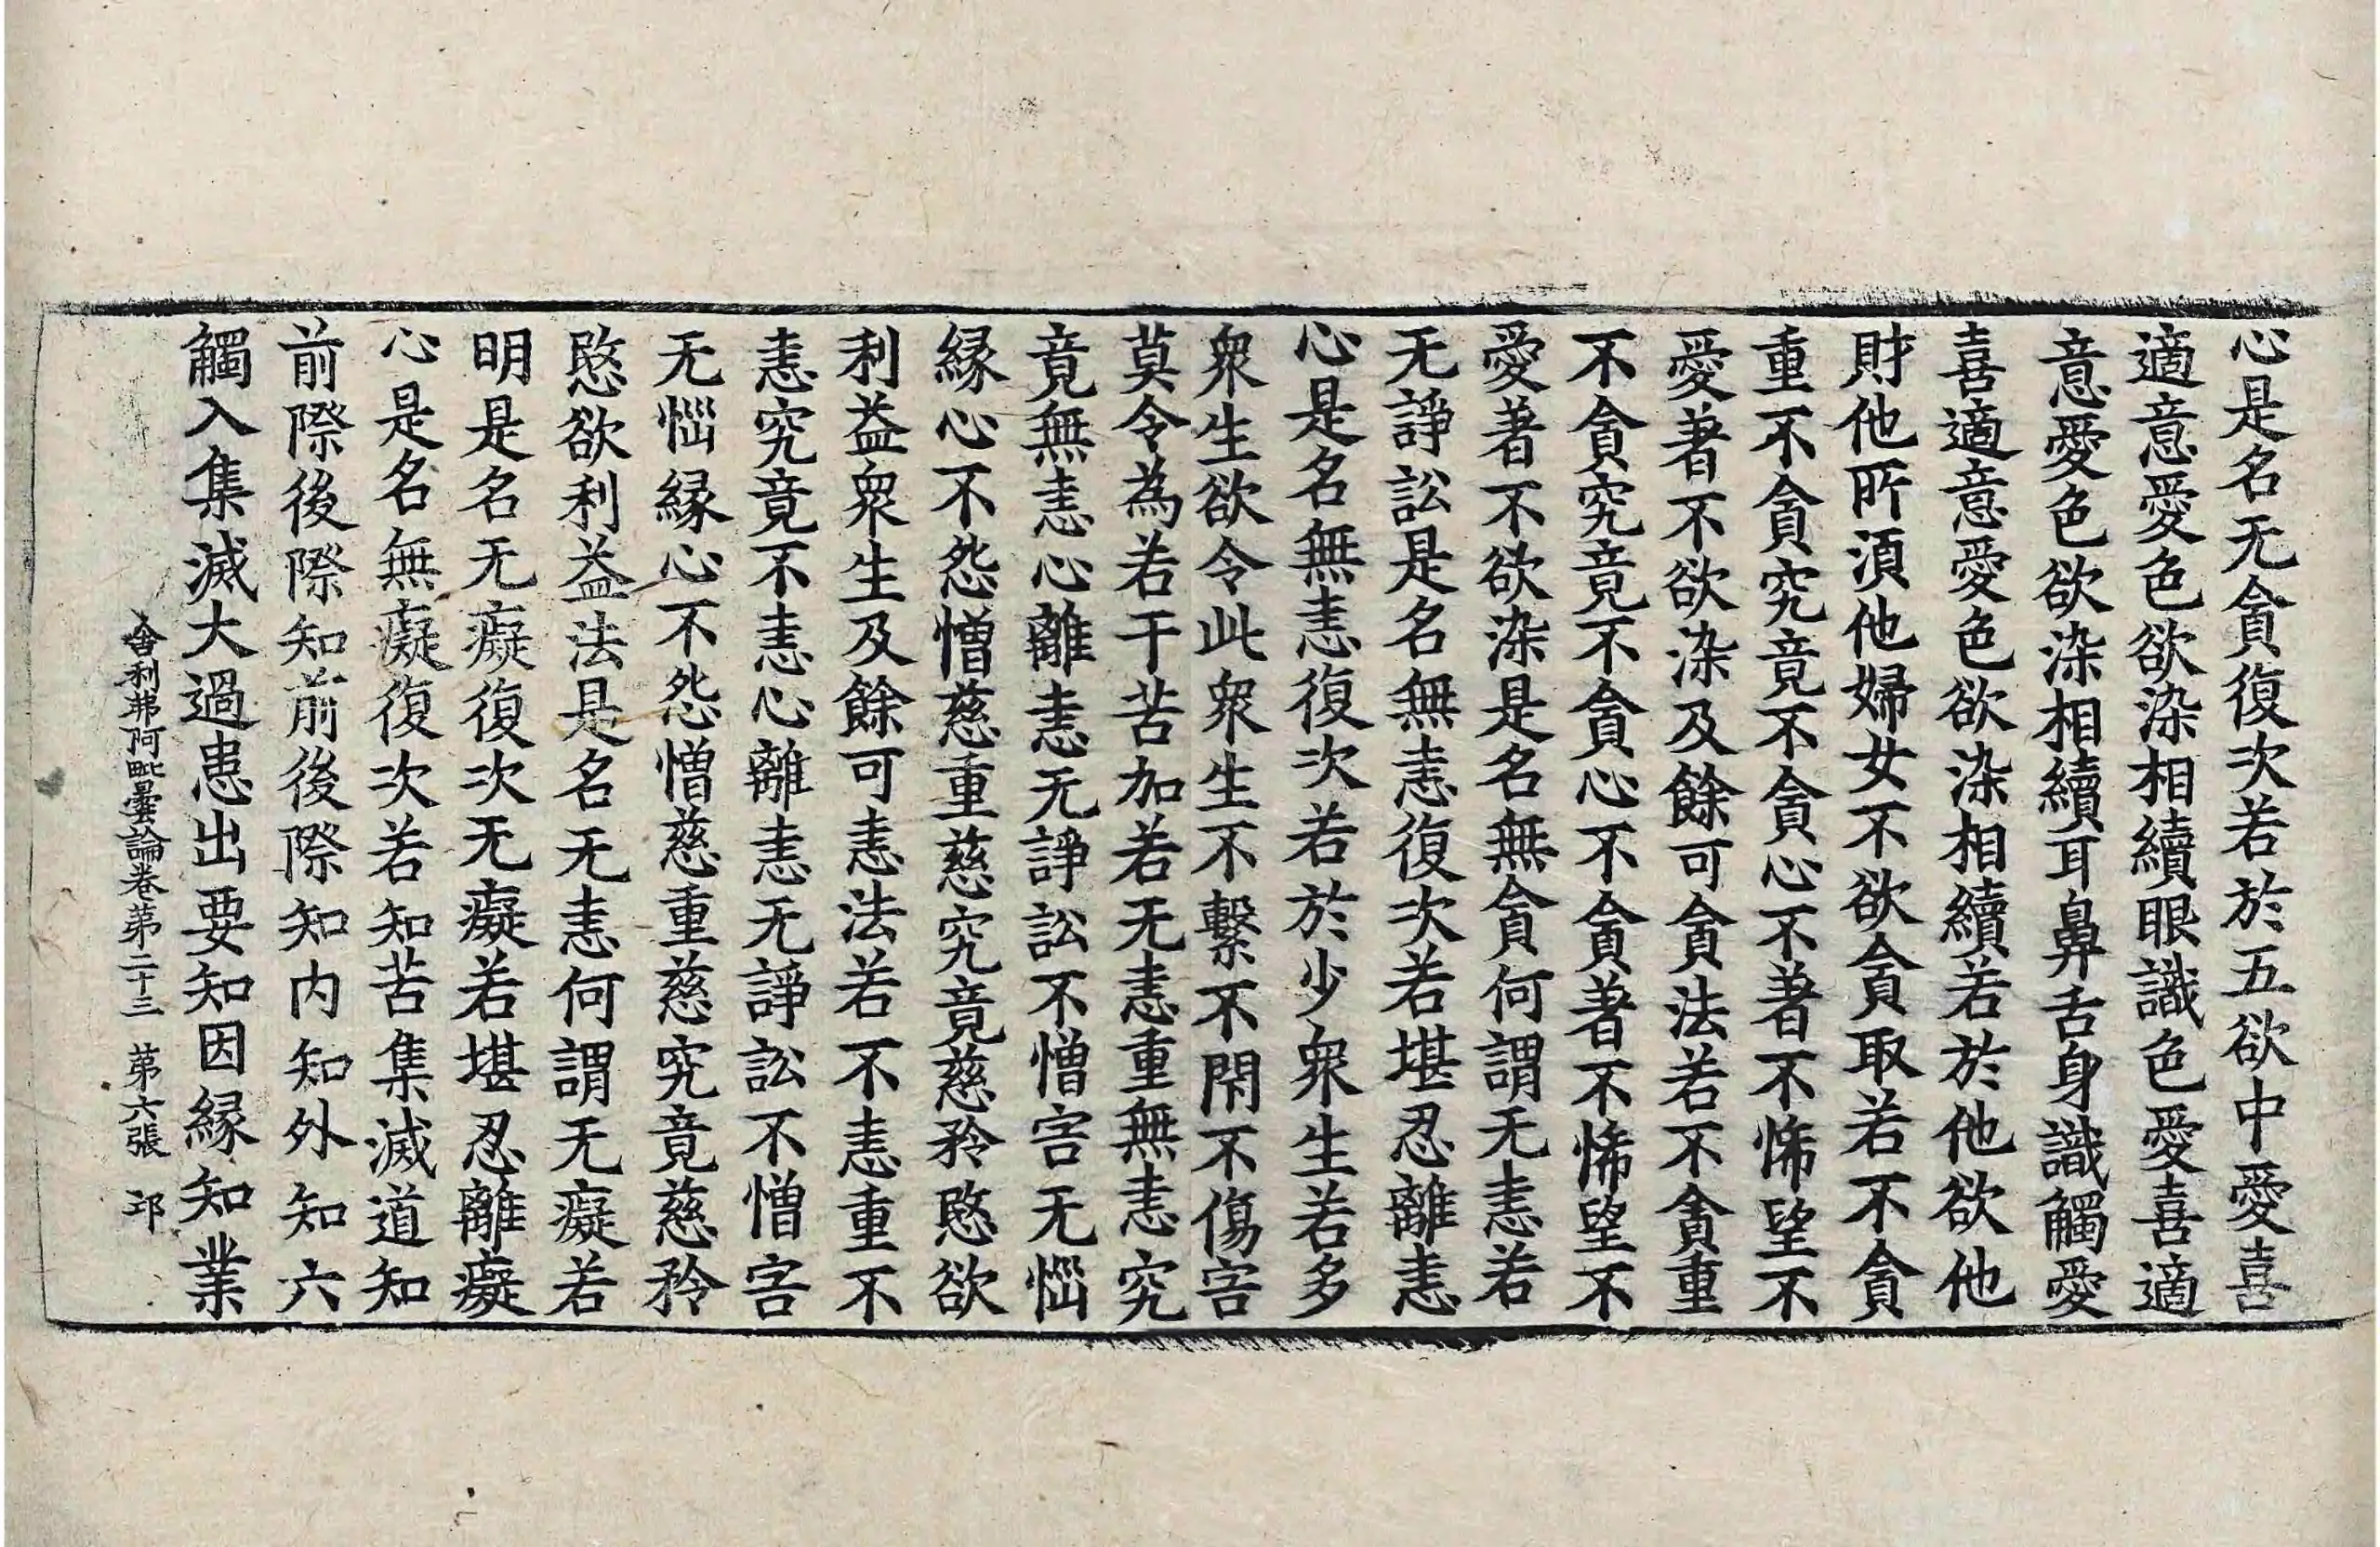 心是名无貪復次若於五欲中愛喜
適意愛色欲染相續眼識色愛喜適
意愛色欲染相續耳鼻舌身識觸愛
喜適意愛色欲染相續若於他欲他
財他所須他婦女不欲貪取若不貪
重不貪究竟不貪心不著不悕望不
愛著不欲染及餘可貪法若不貪重
不貪究竟不貪心不貪著不悕望不
愛著不欲染是名無貪何謂无恚若
无諍訟是名無恚復次若堪忍離恚
心是名無恚復次若於少衆生若多
衆生欲令此衆生不繫不閇不傷害
莫令為若干苦加若无恚重無恚究
竟無恚心離恚无諍訟不憎害无惱
緣心不怨憎慈重慈究竟慈矜愍欲
利益衆生及餘可恚法若不恚重不
恚究竟不恚心離恚无諍訟不憎害
无惱緣心不怨憎慈重慈究竟慈矜
愍欲利益法是名无恚何謂无癡若
明是名无癡復次无癡若堪忍離癡
心是名無癡復次若知苦集滅道知
前際後際知前後際知内知外知六
觸入集滅大過患出要知因緣知業
舍利弗阿毗曇論卷第二十三 第六張 邛